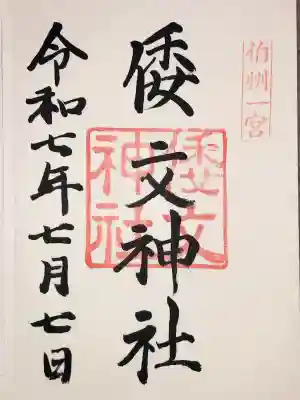 伯州一宮
倭文神社
倭文神社
令和七年七月七日